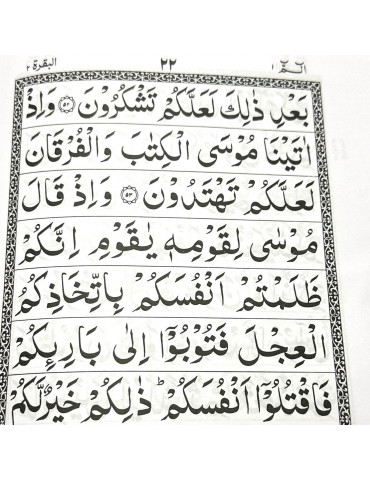 البقرة ۲ ۲۲ الٓمّٓ ۱
بَعْدِ ذٰلِكَ لَعَلَّكُمْ تَشْكُرُوْنَ ﴿۵۲﴾ وَاِذْ
اٰتَيْنَا مُوْسَى الْكِتٰبَ وَالْفُرْقَانَ
لَعَلَّكُمْ تَهْتَدُوْنَ ﴿۵۳﴾ وَاِذْ قَالَ
مُوْسٰى لِقَوْمِهٖ يٰقَوْمِ اِنَّكُمْ
ظَلَمْتُمْ اَنْفُسَكُمْ بِاتِّخَاذِكُمُ
الْعِجْلَ فَتُوْبُوْٓا اِلٰى بَارِئِكُمْ
فَاقْتُلُوْٓا اَنْفُسَكُمْ ؕ ذٰلِكُمْ خَيْرٌ لَّكُمْ